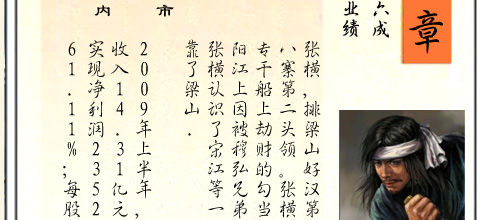 章
六成
业绩
市
内
张横，排梁山好汉第
八寨第二头领。张横
专干船上劫财的勾当
阳江上因被穆弘兄弟
张横认识了宋江等一
靠了梁山．
2009年上半年，
收入14.31亿元，
实现净利润2352
61.11%；每股